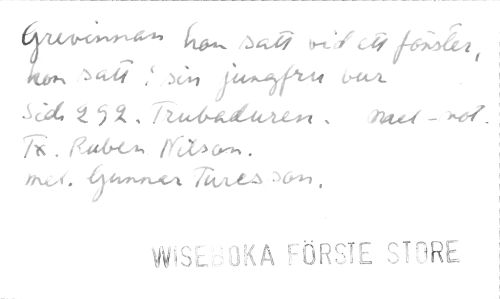 Grevinnan hon satt vid ett fönster,
hon satt i sin jungfru bur
Sid 292. Trubaduren. mel-not.
Tx. Ruben Nilson.
mel. Gunnar Turesson.
WISEBOKA FÖRSTE STORE